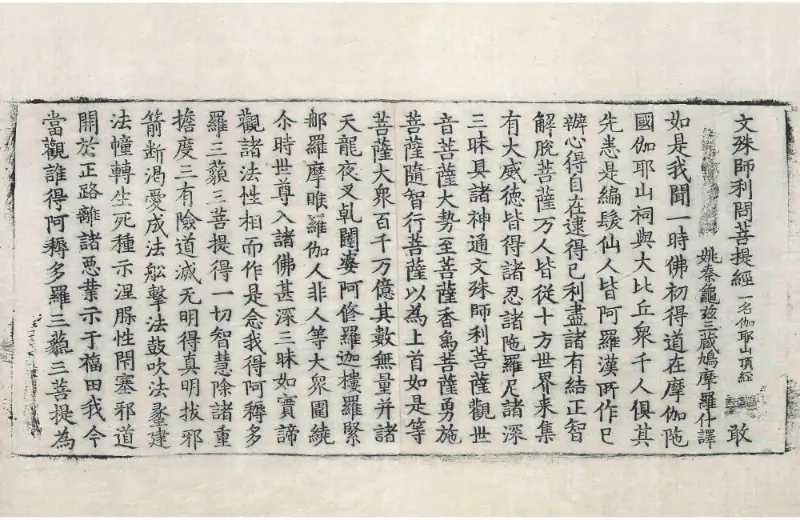 文殊師利問菩提經一名伽耶山頂經 敢
姚秦龜茲三藏鳩摩羅什譯
如是我聞一時佛初得道在摩伽陁
國伽耶山祠與大比丘衆千人俱其
先悉是編髮仙人皆阿羅漢所作已
辦心得自在逮得己利盡諸有結正智
解脫菩薩万人皆從十方世界来集
有大威德皆得諸忍諸陁羅尼諸深
三昧具諸神通文殊師利菩薩觀世
音菩薩大勢至菩薩香象菩薩勇施
菩薩隨智行菩薩以為上首如是等
菩薩大衆百千万億其數無量并諸
天龍夜叉乹闥婆阿修羅迦樓羅緊
那羅摩睺羅伽人非人等大衆圍繞
尒時世尊入諸佛甚深三昧如實諦
觀諸法性相而作是念我得阿耨多
羅三藐三菩提得一切智慧除諸重
擔度三有險道滅无明得真明拔邪
箭断渴愛成法舩擊法鼓吹法䗍建
法幢轉生死種示涅槃性閇塞邪道
開於正路離諸惡業示于福田我今
當觀誰得阿耨多羅三藐三菩提為